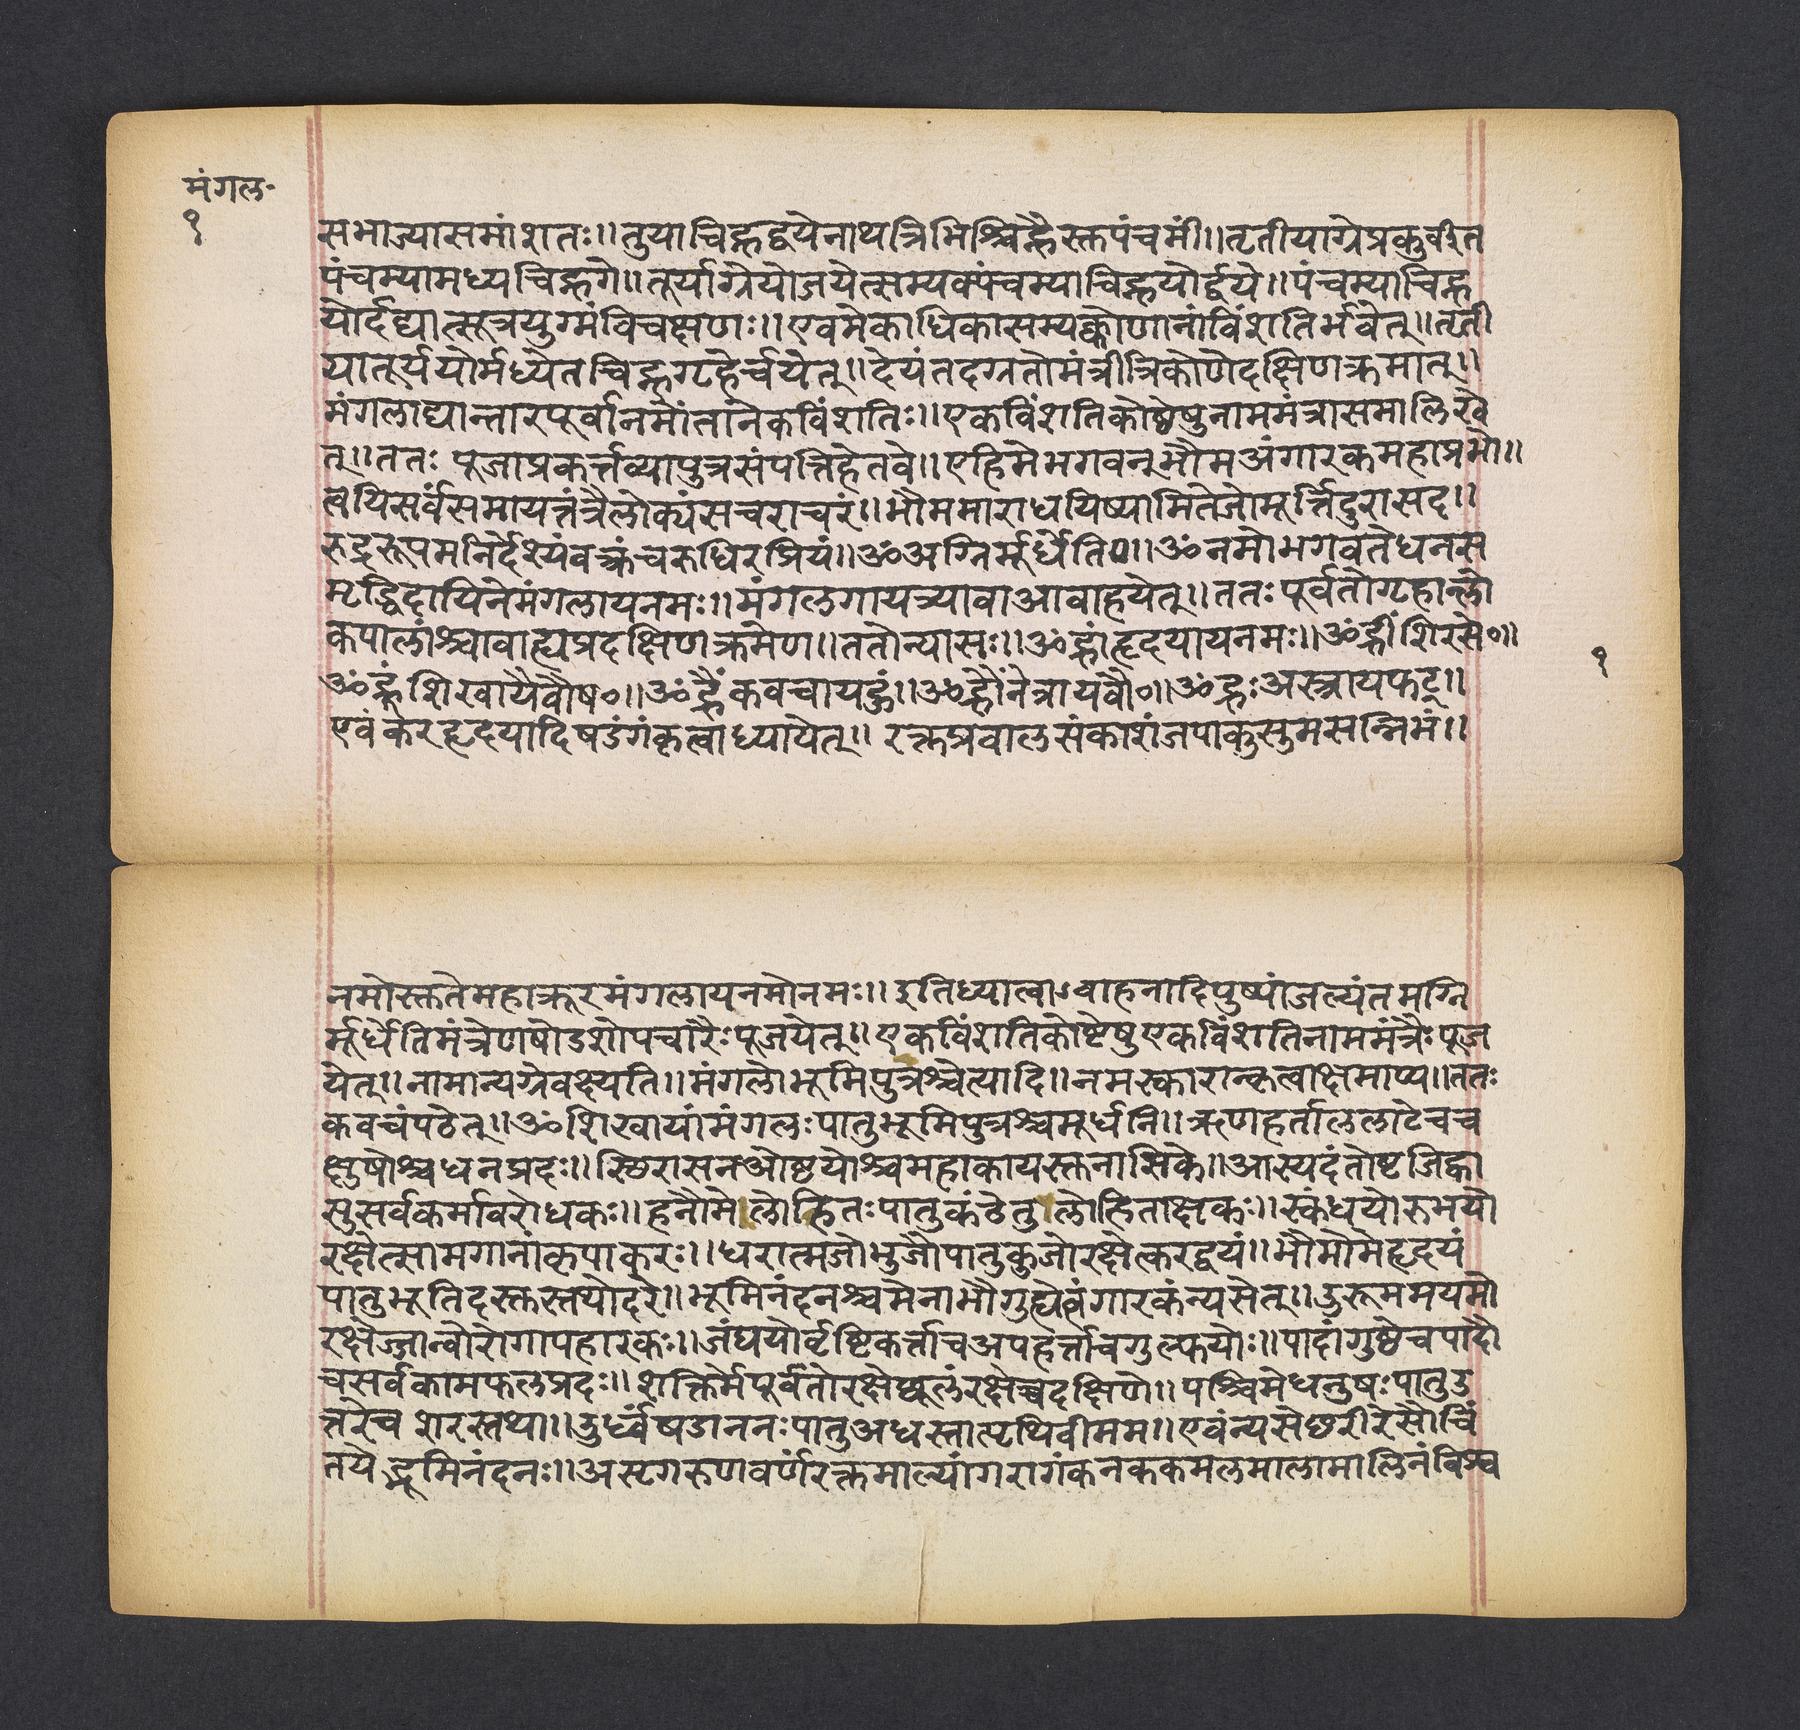 मंगल॰
१
सभाज्यासमांशतः॥तुयाचिह्नद्वयेनाथत्रिभिश्चिह्नैस्क्तपंचमीं॥तृतीयाग्रेप्रकुर्वीत
पंचम्यामध्यचिह्नगे॥तूर्याग्रेयोजयेत्सम्यक्पंचम्याचिह्नयोर्द्वये॥पंचम्याचिह्न
योर्दद्यात्सूत्रयुग्मंविचक्षणः॥एवमेकाधिकासम्यक्कोणानांविंशतिर्भवेत्॥तृती
यातूर्ययोर्मध्येतच्चिह्नगृहेर्च्चयेत्॥देयंतदग्रतोमंत्रीत्रिकोणेदक्षिणक्रमात्॥
मंगलाद्यान्तारपूर्वानमोंतानेकविंशतिः॥एकविंशतिकोष्ठेषुनाममंत्रासमालिखे
त्॥ततः पूजाप्रकर्त्तव्यापुत्रसंपत्तिहेतवे॥एहिमेभगवन्भौमअंगारकमहाप्रभो॥
त्वयिसर्वसमायत्तंत्रैलोक्यंसचराचरं॥भौममाराधयिष्यामितेजोमूर्त्तिदुरासद॥
रुद्ररूपमनिर्देश्यंवक्रंचरुधिरप्रियं॥ॐअग्निर्मूर्धेति०॥ॐनमोभगवतेधनस
मृद्धिदायिनेमंगलायनमः॥मंगलगायत्र्यावाआवाहयेत्॥ततःपूर्वतोगृहान्लो
कपालांश्चावाह्यप्रदक्षिणक्रमेण॥ततोन्यासः॥ॐह्रांहृदयायनमः॥ॐह्रींशिरसे०॥
ॐह्रूंशिखायैवौष०॥ॐह्रैंकवचायहुं॥ॐह्रौंनेत्रायवौ०॥ॐह्रःअस्त्रायफट्॥
एवंकरहृदयादिषडंगंकृत्वाध्यायेत्॥ रक्तप्रवालसंकाशंजपाकुसुमसन्निभं॥
१
नमोस्क्ततेमहाक्रूरमंगलायनमोनमः॥इतिध्यात्वाऽवाहनादिपुष्पांजल्यंतमग्नि
र्मूर्धेतिमंत्रेणषोडशोपचारैःपूजयेत्॥एकविंशतिकोष्टेषुएकविंशतिनाममंत्रैःपूज
येत्॥नामान्यग्रेवक्ष्यति॥मंगलोभूमिपुत्रश्चेत्यादि॥नमस्कारान्कृत्वाक्षमाप्य॥ततः
कवचंपठेत्॥ॐशिखायांमंगलःपातुभूमिपुत्रश्चमूर्धनि॥ऋणहर्ताललाटेचच
क्षुषोश्चधनप्रदः॥स्छिरासनओष्ठयोश्चमहाकायस्क्तनासिके॥आस्यदंतोष्टजिह्वा
सुसर्वकर्मावरोधकः॥हनौमेलोहितःपातुकंठेतुलोहिताक्षकः॥स्कंधयोरुभयो
रक्षेत्सामगानांकृपाकरः॥धरात्मजोभुजौपातुकुजोरक्षेत्करद्वयं॥भौमोमेहृदयं
पातुभूतिदस्क्तस्तथोदरे॥भूमिनंदनश्चमेनाभौगुह्येत्वंगारकंन्यसेत्॥उरूममयमो
रक्षेज्जान्वोरोगापहारकः॥जंघयोर्वृष्टिकर्त्ताचअपहर्त्ताचगुल्फयोः॥पादांगुष्ठेचपादौ
चसर्वकामफलप्रदः॥शक्तिर्मेपूर्वतोरक्षेछूलंरक्षेच्चदक्षिणे॥पश्चिमेधनुषःपातुउ
त्तरेच शरस्तथा॥उर्ध्वंषडाननःपातुअधस्तात्पृथिवीमम॥एवंन्यसेछरीरेसौचिं
तयेद्भूमिनंदनः॥असृगरुणवर्णंरक्तमाल्यांगरागंकनककमलमालामालिनंविश्व